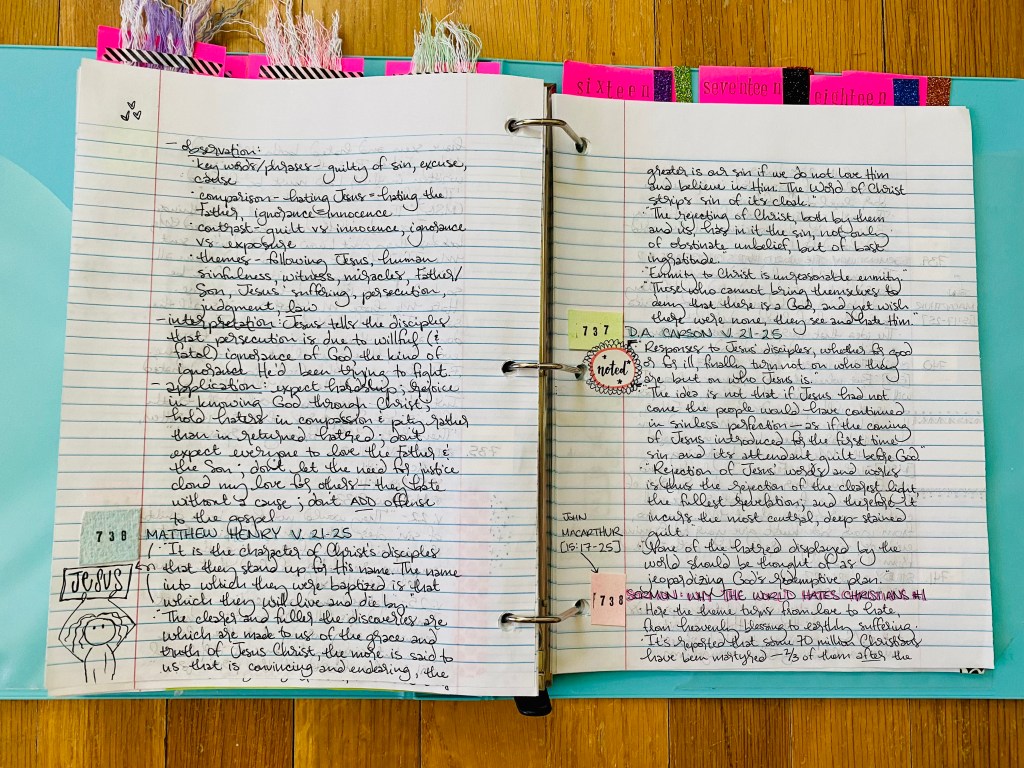 sixteen
seventeen
eighteen
- observation:
· key words/phrases - guilty of sin, excuse,
cause
· comparison - hating Jesus = hating the
Father, ignorance = innocence
· contrast - guilt vs innocence, ignorance
vs exposure
· themes - following Jesus, human
sinfulness, witness, miracles, Father/
Son, Jesus' suffering, persecution,
judgment, law
- interpretation: Jesus tells the disciples
that persecution is due to willful (&
fatal) ignorance of God, the kind of
ignorance He'd been trying to fight.
- application: expect hardship; rejoice
in knowing God through Christ;
hold haters in compassion & pity rather
than in returned hatred; don't
expect everyone to love the Father &
the Son; don't let the need for justice
cloud my love for others - they hate
without a cause; don't ADD offense
to the gospel
738
MATTHEW HENRY V. 21-25
· "It is the character of Christ's disciples
that they stand up for His name. The name
into which they were baptized is that
which they will live and die by."
JESUS
· "The clearer and fuller the discoveries are
which are made to us of the grace and
truth of Jesus Christ, the more is said to
us that is convincing and endearing, the
greater is our sin if we do not love Him
and believe in Him. The Word of Christ
strips sin of its cloak."
· "The rejecting of Christ, both by them
and us, has in it the sin, not only
of obstinate unbelief but of base
ingratitude."
· "Enmity to Christ is unreasonable enmity."
· "Those who cannot bring themselves to
deny that there is a God, and yet wish
there were none, they see and hate Him."
737
D.A. CARSON V. 21-25
noted
· "Responses to Jesus' disciples, whether for good
or for ill, finally turn not on who they
are but on who Jesus is."
· "The idea is not that if Jesus had not
come the people would have continued
in sinless perfection - as if the coming
of Jesus introduced for the first time
sin and its attendant guilt before God"
· "Rejection of Jesus' words and works
is thus the rejection of the clearest light,
the fullest revelation; and therefore it
incurs the most central, deep-stained
guilt."
· "None of the hatred displayed by the
world should be thought of as
jeopardizing God's redemptive plan.
JOHN
MACARTHUR
[15:17-25]
738
SERMON: WHY THE WORLD HATES CHRISTIANS #1
· Here the theme turns from love to hate,
from heavenly blessing to earthly suffering.
· It's reported that some 70 million Christians
have been martyred - 2/3 of them after the